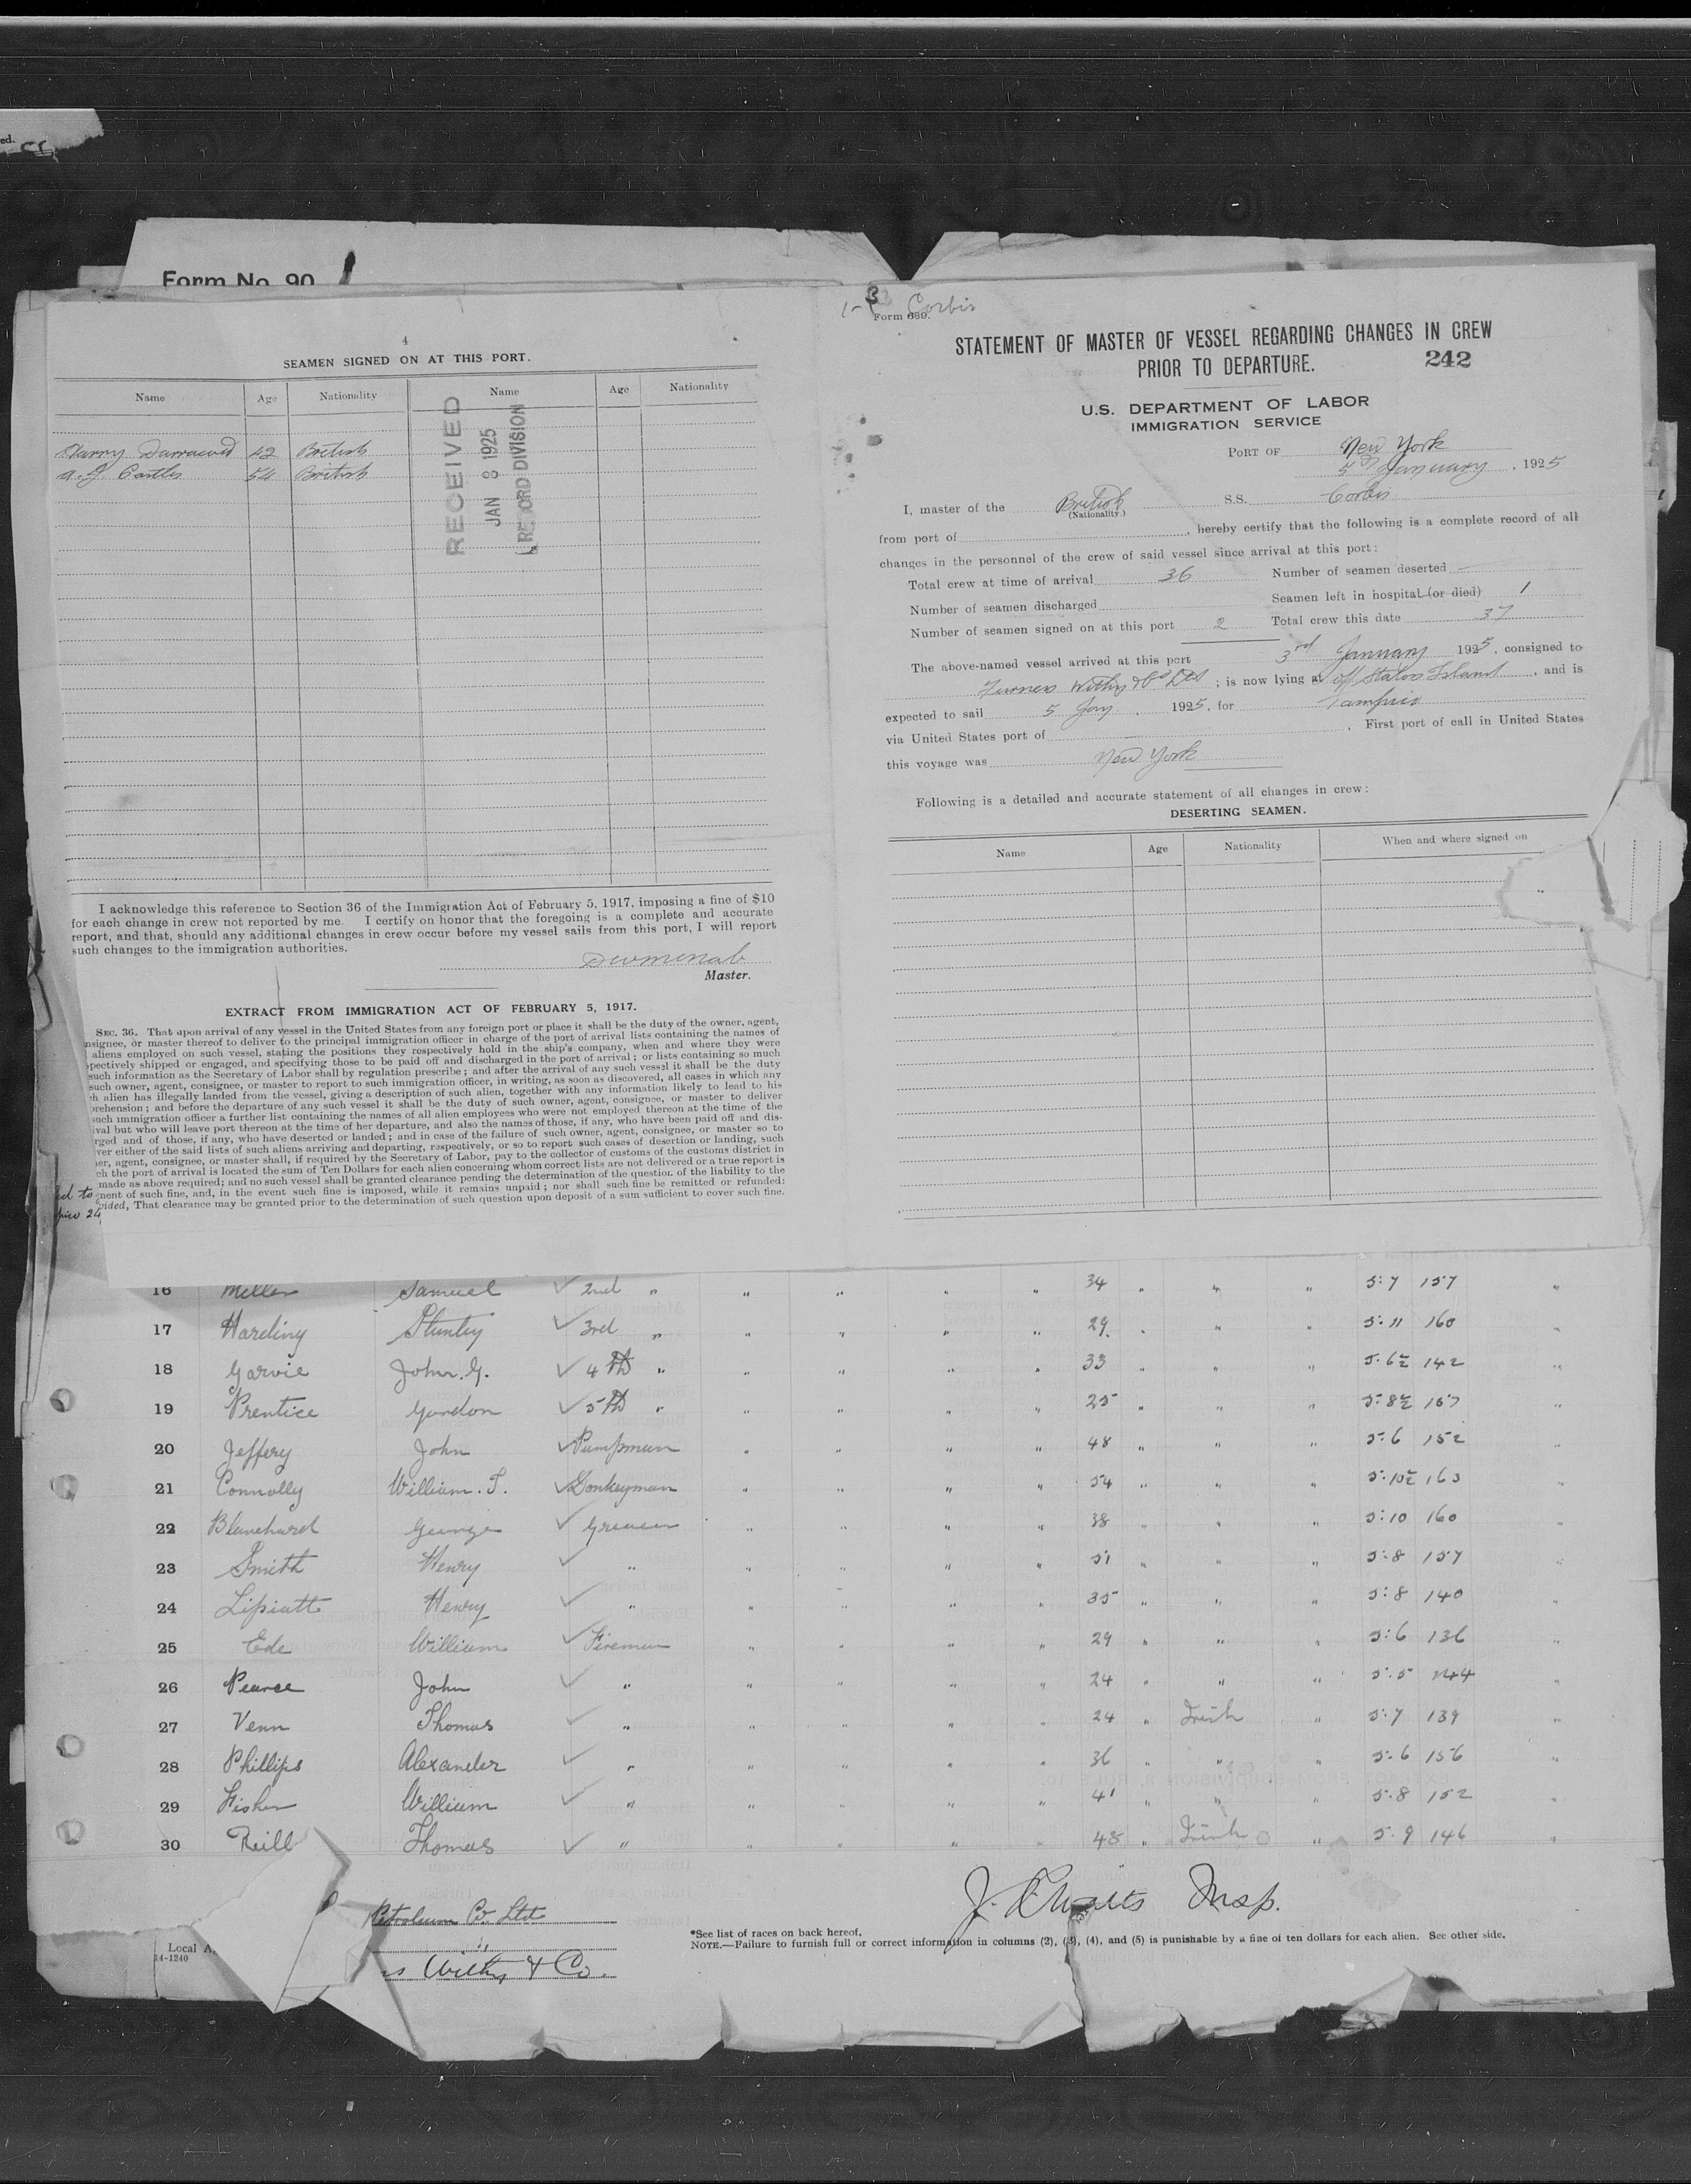 ed.
Form No. 90
4
SEAMEN SIGNED ON AT THIS PORT.
Name Age Nationality Name Age Nationality
Harry 42 British
A. J. Castles 54 British
RECEIVED
JAN 8 1925
RECORD DIVISION
I acknowledge this reference to Section 36 of the Immigration Act of February 5, 1917, imposing a fine of $10
for each change in crew not reported by me. I certify on honor that the foregoing is a complete and accurate
report, and that, should any additional changes in crew occur before my vessel sails from this port, I will report
such changes to the immigration authorities.
Master.
EXTRACT FROM IMMIGRATION ACT OF FEBRUARY 5, 1917.
SEC. 36. That upon arrival of any vessel in the United States from any foreign port or place it shall be the duty of the owner, agent,
nsignee, or master thereof to deliver to the principal immigration officer in charge of the port of arrival lists containing the names of
aliens employed on such vessel, stating the positions they respectively hold in the ship's company, when and where they were
pectively shipped or engaged, and specifying those to be paid off and discharged in the port of arrival; or lists containing so much
such information as the Secretary of Labor shall by regulation prescribe; and after the arrival of any such vessel it shall be the duty
such owner, agent, consignee, or master to report to such immigration officer, in writing, as soon as discovered, all cases in which any
ch alien has illegally landed from the vessel, giving a description of such alien, together with any information likely to lead to his
prehension; and before the departure of any such vessel it shall be the duty of such owner, agent, consignee, or master to deliver
such immigration officer a further list containing the names of all alien employees who were not employed thereon at the time of the
ival but who will leave port thereon at the time of her departure, and also the names of those, if any, who have been paid off and dis-
rged and of those, if any, who have deserted or landed; and in case of the failure of such owner, agent, consignee, or master so to
ver either of the said lists of such aliens arriving and departing, respectively, or so to report such cases of desertion or landing, such
er, agent, consignee, or master shall, if required by the Secretary of Labor, pay to the collector of customs of the customs district in
ch the port of arrival is located the sum of Ten Dollars for each alien concerning whom correct lists are not delivered or a true report is
made as above required; and no such vessel shall be granted clearance pending the determination of the question of the liability to the
ment of such fine, and, in the event such fine is imposed, while it remains unpaid; nor shall such fine be remitted or refunded:
vided, That clearance may be granted prior to the determination of such question upon deposit of a sum sufficient to cover such fine.
ed to
pico 24
1-3 Corbis
Form 689.
STATEMENT OF MASTER OF VESSEL REGARDING CHANGES IN CREW
PRIOR TO DEPARTURE. 242
U.S. DEPARTMENT OF LABOR
IMMIGRATION SERVICE
PORT OF New York
5th January, 1925
I, master of the British S.S. Corbis
(Nationality.)
from port of , hereby certify that the following is a complete record of all
changes in the personnel of the crew of said vessel since arrival at this port:
Total crew at time of arrival 36 Number of seamen deserted —
Number of seamen discharged Seamen left in hospital (or died) 1
Number of seamen signed on at this port 2 Total crew this date 37
The above-named vessel arrived at this port 3rd January 1925, consigned to
Furness Withy & Co Ltd ; is now lying at off Staten Island , and is
expected to sail 5 Jany. 1925, for Tampico
via United States port of , First port of call in United States
this voyage was New York
Following is a detailed and accurate statement of all changes in crew:
DESERTING SEAMEN.
Name Age Nationality When and where signed on
16 Miller Samuel ✓ 2nd " " " " " 34 " " " 5:7 157 "
17 Harding Stanley ✓ 3rd " " " " " 29 " " " 5:11 160 "
18 Garvie John. G. ✓ 4th " " " " " 33 " " " 5.6½ 142 "
19 Prentice Gordon ✓ 5th " " " " " 25 " " " 5:8½ 157 "
20 Jeffery John ✓ Pumpman " " " " 48 " " " 5:6 152 "
21 Connolly William. T. ✓ Donkeyman " " " " 54 " " " 5:10½ 163 "
22 Blanchard George ✓ Greaser " " " " 38 " " " 5:10 160 "
23 Smith Henry ✓ " " " " " 51 " " " 5:8 157 "
24 Lipiatt Henry ✓ " " " " " 35 " " " 5:8 140 "
25 Ede William ✓ Fireman " " " " 29 " " " 5:6 136 "
26 Pearce John ✓ " " " " " 24 " " " 5:5 144 "
27 Venn Thomas ✓ " " " " " 24 " Irish " 5:7 139 "
28 Phillips Alexander ✓ " " " " " 36 " " " 5:6 156 "
29 Fisher William ✓ " " " " " 41 " " " 5.8 152 "
30 Reill Thomas ✓ " " " " " 48 " Irish " 5.9 146 "
Petroleum Co. Ltd
Insp.
Local A
14-1240
s Withy & Co.
*See list of races on back hereof.
NOTE.—Failure to furnish full or correct information in columns (2), (3), (4), and (5) is punishable by a fine of ten dollars for each alien. See other side.